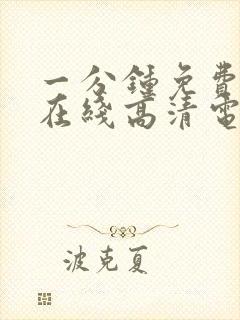 一分鍾免費
在綫高清電
波克夏